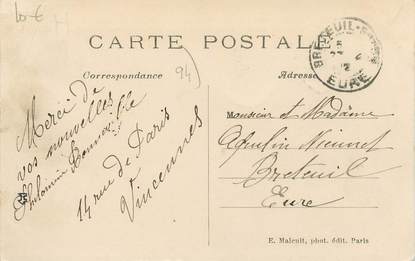 10 €
CARTE POSTALE
Correspondance
Adresse
94
BRETEUIL
EURE
Merci de
vos nouvelles
14 rue de Paris
Vincennes
Monsieur et Madame
Breteuil
Eure
E. Malcuit, phot. édit. Paris